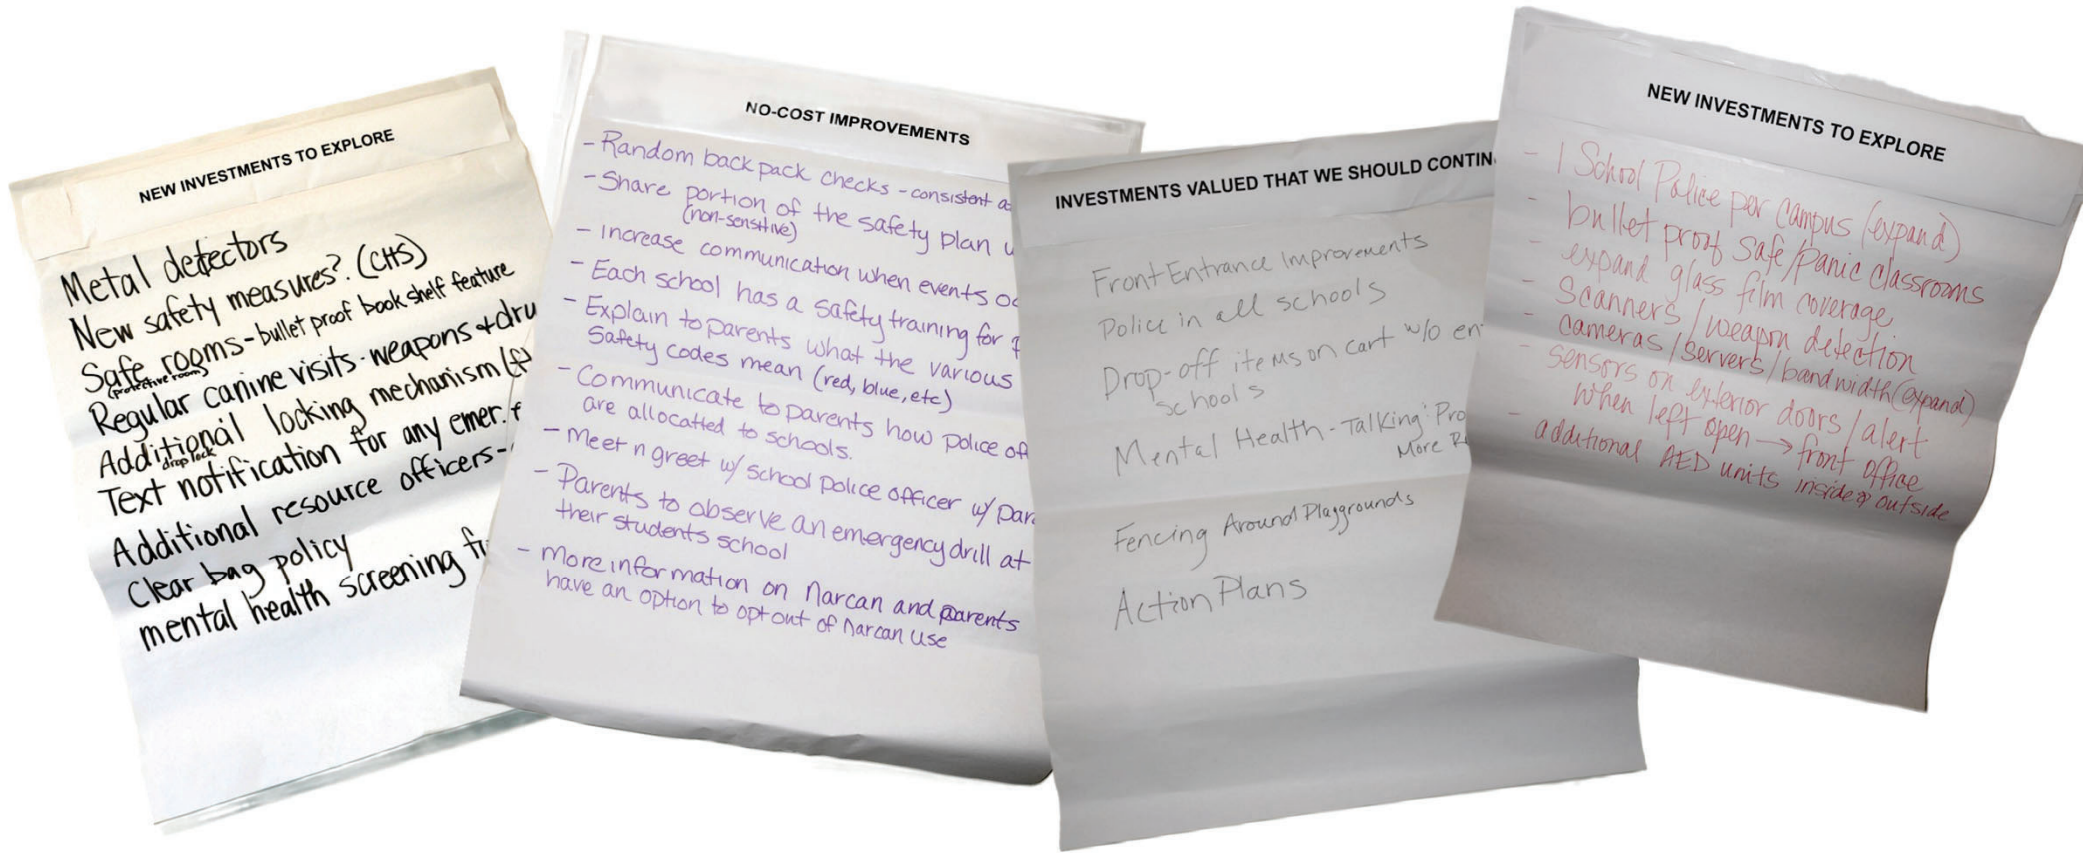 NEW INVESTMENTS TO EXPLORE
Metal detectors
New safety measures?. (CHS)
Safe rooms - bullet proof book shelf feature
(protective room)
Regular canine visits - weapons + dru
Additional locking mechanism (f
drop lock
Text notification for any emer. f
Additional resource officers -
Clear bag policy
mental health screening f
NO-COST IMPROVEMENTS
- Random back pack checks - consistent a
- Share portion of the safety plan
(non-sensitive)
- Increase communication when events oc
- Each school has a safety training for
- Explain to parents what the various
Safety codes mean (red, blue, etc)
- Communicate to parents how police off
are allocatted to schools.
- Meet n greet w/ school police officer w/ par
- Parents to observe an emergency drill at
their students school
- More information on Narcan and parents
have an option to opt out of Narcan use
INVESTMENTS VALUED THAT WE SHOULD CONTIN
Front Entrance Improvements
Police in all schools
Drop-off items on cart w/o en
schools
Mental Health - Talking Pro
More R
Fencing Around Playgrounds
Action Plans
NEW INVESTMENTS TO EXPLORE
- 1 School Police per campus (expand)
- bullet proof safe/panic classrooms
- expand glass film coverage
- Scanners / weapon detection
- cameras / servers / bandwidth (expand)
- sensors on exterior doors / alert
when left open → front office
- additional AED units inside & outside